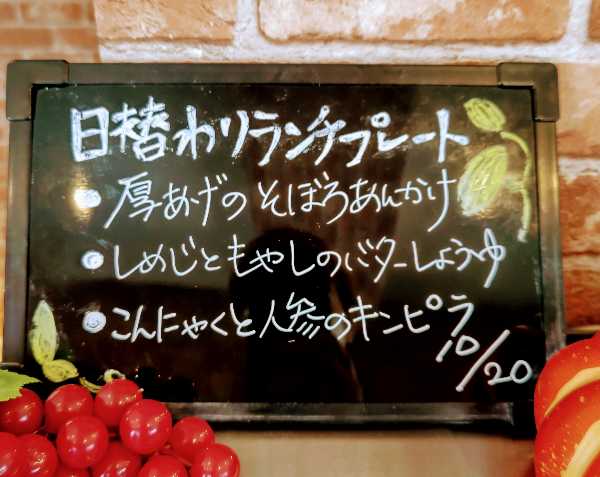 日替わりランチプレート
・厚あげのそぼろあんかけ
・しめじともやしのバターしょうゆ
・こんにゃくと人参のキンピラ
10/20